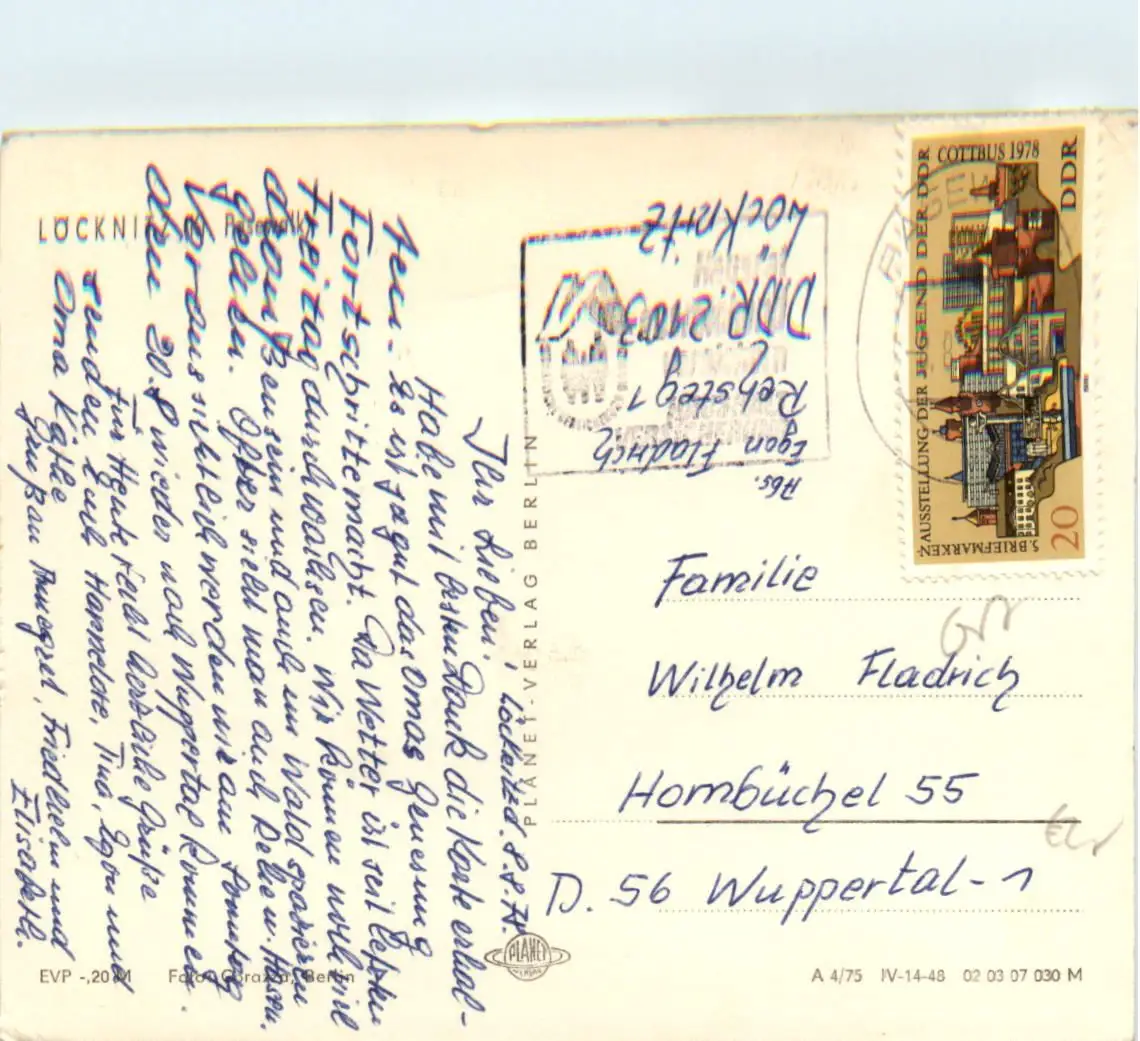 LÖCKNITZ, Kr. Pasewalk
Löcknitz d. 8.8.78.
Ihr Lieben,
Habe mit besten Dank die Karte erhal-
ten. Es ist ja gut das Omas Genesung
Fortschritte macht. Da Wetter ist seit letzten
Freitag durchwachsen. Wir können noch viel
draußen sein und auch im Wald spazieren
gehen. Öfter sieht man auch Rehe u. Hasen.
Voraussichtlich werden wir am Sonntag
den 20.8 wieder nach Wuppertal kommen.
Für Heute recht herzliche Grüße
senden Euch Hannelore, Egon und
Oma Käthe
Gruß an Irmegard, Friedhelm und
Elisabeth.
PLANET-VERLAG BERLIN
Abs.
Egon Fladrich
Rehsteg 1
DDR 2103
Löcknitz
5. BRIEFMARKEN-AUSSTELLUNG DER JUGEND DER DDR
COTTBUS 1978
DDR
20
Familie
Wilhelm Fladrich
Hombüchel 55
D. 56 Wuppertal-1
PLANET
VERLAG
EVP -,20 M Foto: Corazza, Berlin
A 4/75 IV-14-48 02 03 07 030 M